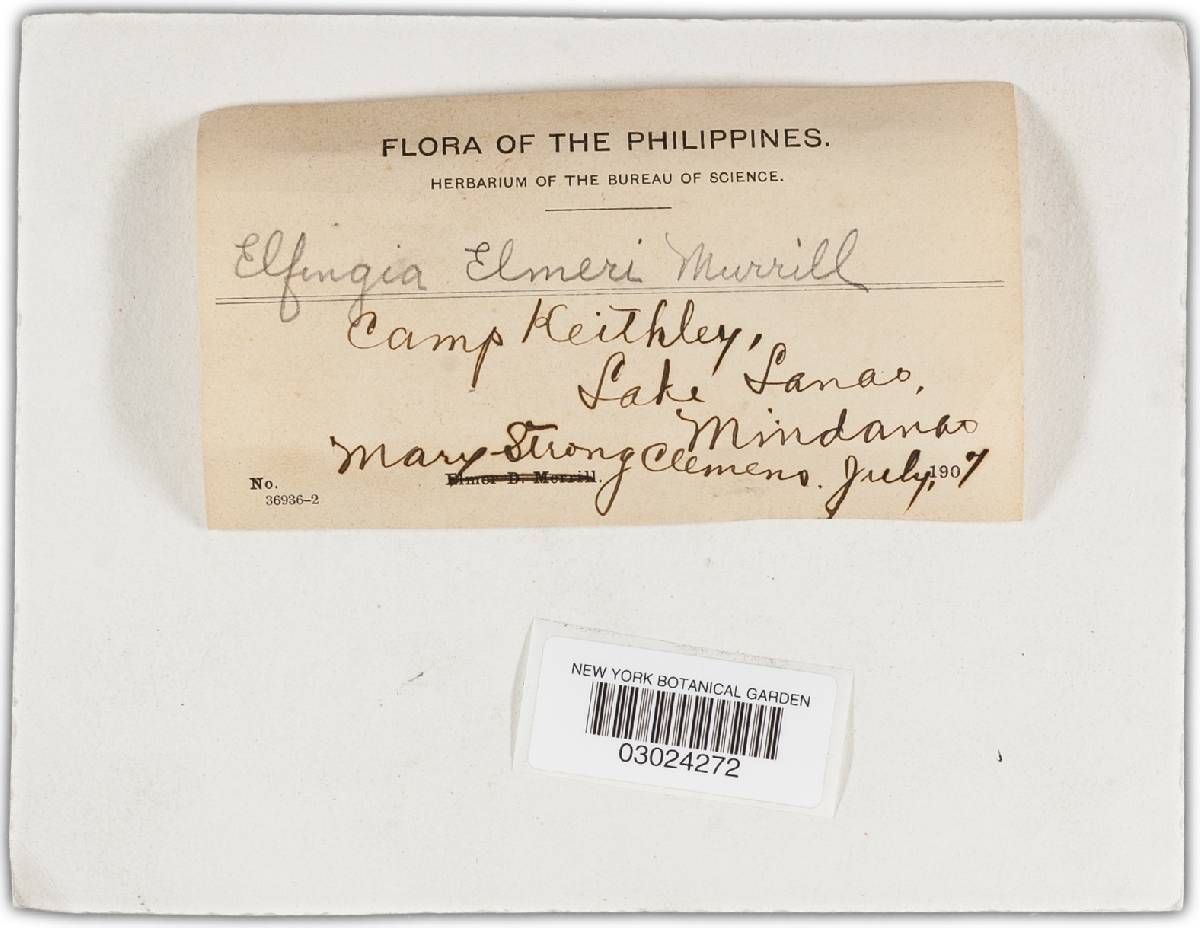 FLORA OF THE PHILIPPINES.
HERBARIUM OF THE BUREAU OF SCIENCE.
Elfingia Elmeri Murrill
Camp Keithley,
Lake Lanao,
Mindanao
Mary Strong Clemens. July, 1907
Elmer D. Merrill.
No.
36936-2
NEW YORK BOTANICAL GARDEN
03024272